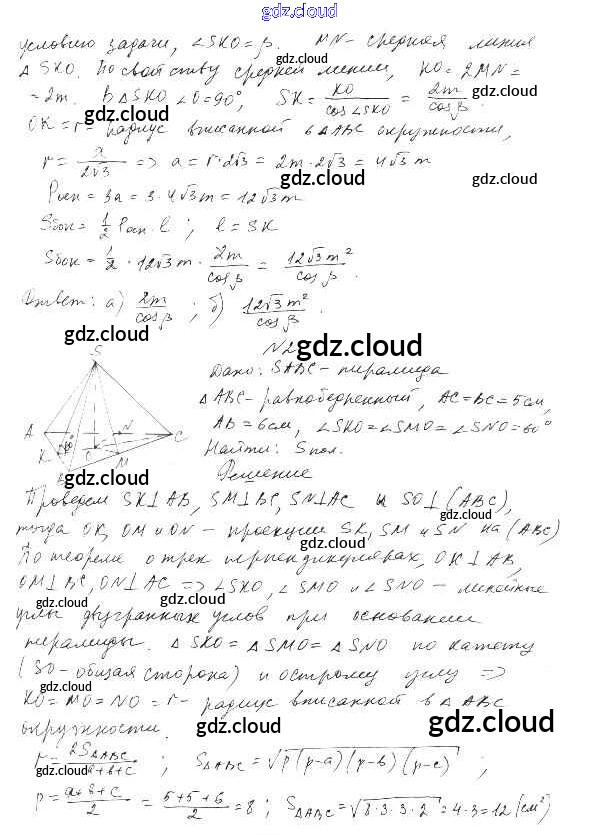 gdz.cloud
условию задачи, ∠SKO = β. MN - средняя линия
gdz.cloud
△ SKO. По свойству средней линии, KO = 2MN =
= 2m. В △ SKO ∠O = 90°, SK = KO / cos ∠SKO = 2m / cos β.
gdz.cloud gdz.cloud
OK = r - радиус вписанной в △ABC окружности,
r = a / 2√3 => a = r · 2√3 = 2m · 2√3 = 4√3 m
gdz.cloud gdz.cloud
Pосн = 3a = 3 · 4√3 m = 12√3 m
Sбок = 1/2 Pосн · l ; l = SK
Sбок = 1/2 · 12√3 m · 2m / cos β = 12√3 m² / cos β.
gdz.cloud gdz.cloud
Ответ: а) 2m / cos β ; б) 12√3 m² / cos β.
gdz.cloud gdz.cloud
N2
S
Дано: SABC - пирамида
△ ABC - равнобедренный, AC = BC = 5 см,
gdz.cloud
A N C
AB = 6 см, ∠SKO = ∠SMO = ∠SNO = 60°
K 60° M
Найти: Sпол.
gdz.cloud gdz.cloud
Решение
Проведем SK⊥AB, SM⊥BC, SN⊥AC и SO⊥(ABC),
gdz.cloud
тогда OK, OM и ON - проекции SK, SM и SN на (ABC)
gdz.cloud
По теореме о трех перпендикулярах, OK⊥AB,
OM⊥BC, ON⊥AC => ∠SKO, ∠SMO и ∠SNO - линейные
gdz.cloud gdz.cloud
углы двугранных углов при основании
gdz.cloud
пирамиды. △ SKO = △ SMO = △ SNO по катету
(SO - общая сторона) и острому углу =>
gdz.cloud
KO = MO = NO = r - радиус вписанной в △ ABC
gdz.cloud
окружности.
gdz.cloud gdz.cloud
r = 2S△ABC / a+b+c ; S△ABC = √p(p-a)(p-b)(p-c) ;
gdz.cloud
p = a+b+c / 2 = 5+5+6 / 2 = 8 ; S△ABC = √8·3·3·2 = 4·3 = 12 (см²)
gdz.cloud